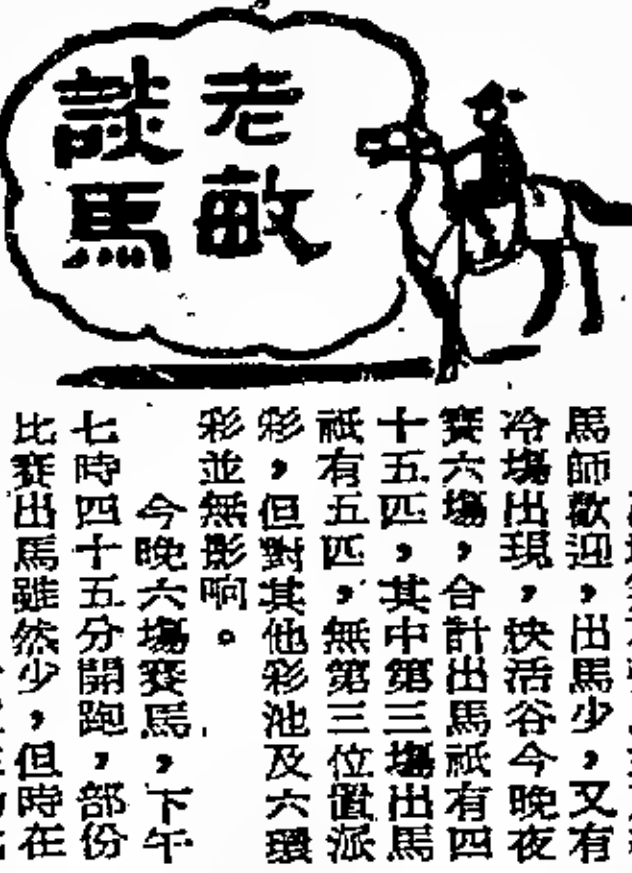 老敏
談馬
馬師歡迎,出馬少,又有
冷塲出現,快活谷今晚夜
賽六塲,合計出馬祇有四
十五匹,其中第三塲出馬
祇有五匹,無第三位置派
彩,但對其他彩池及六環
彩並無影响。
今晚六塲賽馬,下午
七時四十五分開跑,部份
比賽出馬雖然少,但時在